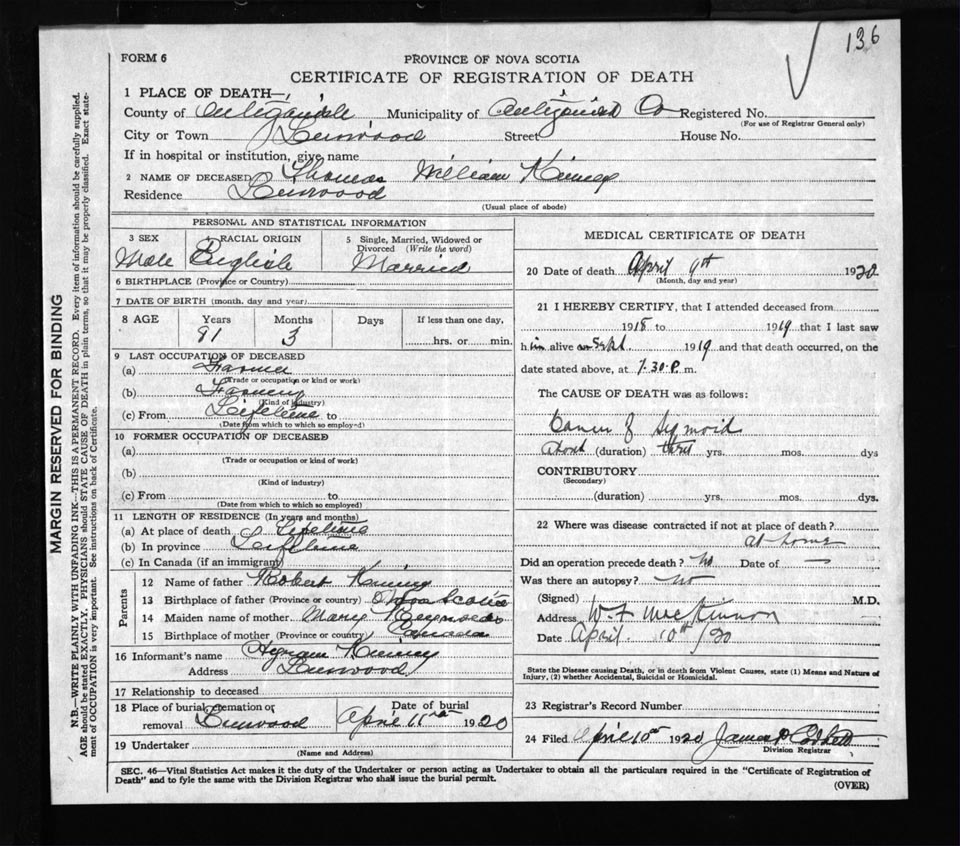 136
FORM 6
PROVINCE OF NOVA SCOTIA
CERTIFICATE OF REGISTRATION OF DEATH
1 PLACE OF DEATH—,
County of Antigonish Municipality of Antigonish Co Registered No.
(For use of Registrar General only)
City or Town Linwood Street House No.
If in hospital or institution, give name
2 NAME OF DECEASED Thomas William Kinney
Residence Linwood
(Usual place of abode)
PERSONAL AND STATISTICAL INFORMATION
3 SEX
RACIAL ORIGIN
5 Single, Married, Widowed or
Divorced (Write the word)
Male English Married
6 BIRTHPLACE (Province or Country)
7 DATE OF BIRTH (month, day and year)
8 AGE Years Months Days If less than one day,
91 3 hrs. or min.
9 LAST OCCUPATION OF DECEASED
(a) Farmer
(Trade or occupation or kind or work)
(b) Farming
(Kind of industry)
(c) From Lifetime to
(Date from which to which so employed)
10 FORMER OCCUPATION OF DECEASED
(a)
(Trade or occupation or kind of work)
(b)
(Kind of industry)
(c) From to
(Date from which to which so employed)
11 LENGTH OF RESIDENCE (In years and months)
(a) At place of death Lifetime
(b) In province Lifetime
(c) In Canada (if an immigrant)
Parents
12 Name of father Robert Kinney
13 Birthplace of father (Province or country) Nova Scotia
14 Maiden name of mother Mary
15 Birthplace of mother (Province or country) Canada
16 Informant's name Hyram Kinney
Address Linwood
17 Relationship to deceased
18 Place of burial, cremation or
removal Linwood
Date of burial
April 11th 1920
19 Undertaker
(Name and Address)
MEDICAL CERTIFICATE OF DEATH
20 Date of death April 9th 1920
(Month, day and year)
21 I HEREBY CERTIFY, that I attended deceased from
1918 to 1919 that I last saw
him alive on Sept 1919 and that death occurred, on the
date stated above, at 7.30 P. m.
The CAUSE OF DEATH was as follows:
Cancer of Sigmoid
About (duration) three yrs. mos. dys
CONTRIBUTORY
(Secondary)
(duration) yrs. mos. dys.
22 Where was disease contracted if not at place of death?
at home
Did an operation precede death? No Date of —
Was there an autopsy? No
(Signed) M.D.
W F McKinnon
Address
Date April 10th /20
State the Disease causing Death, or in death from Violent Causes, state (1) Means and Nature of
Injury, (2) whether Accidental, Suicidal or Homicidal.
23 Registrar's Record Number
24 Filed April 10th 1920 James P Corbett
Division Registrar
SEC. 46—Vital Statistics Act makes it the duty of the Undertaker or person acting as Undertaker to obtain all the particulars required in the "Certificate of Registration of
Death" and to fyle the same with the Division Registrar who shall issue the burial permit.
(OVER)
MARGIN RESERVED FOR BINDING
N.B.—WRITE PLAINLY WITH UNFADING INK—THIS IS A PERMANENT RECORD. Every item of information should be carefully supplied.
AGE should be stated EXACTLY. PHYSICIANS should STATE CAUSE OF DEATH in plain terms, so that it may be properly classified. Exact state-
ment of OCCUPATION is very important. See instructions on back of Certificate.